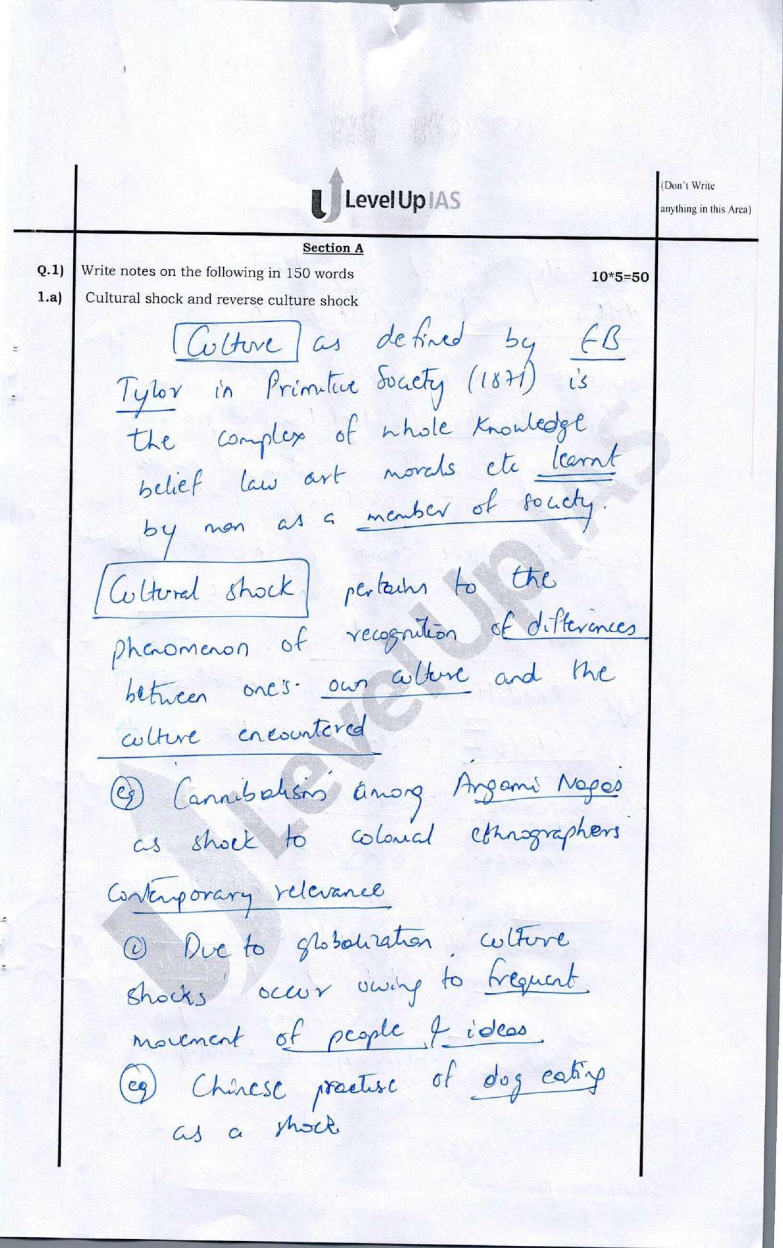 Level Up IAS
(Don't Write
anything in this Area)
Section A
Q.1) Write notes on the following in 150 words 10*5=50
1.a) Cultural shock and reverse culture shock
Culture as defined by EB
Tylor in Primitive Society (1871) is
the complex of whole knowledge
belief law art morals etc learnt
by man as a member of society.
Cultural shock pertains to the
phenomenon of recognition of differences
between one's own culture and the
culture encountered
eg Cannibalism among Angami Nagas
as shock to colonial ethnographers
Contemporary relevance
Due to globalization, culture
shocks occur owing to frequent
movement of people & ideas
eg Chinese practise of dog eating
as a shock
Level Up IAS